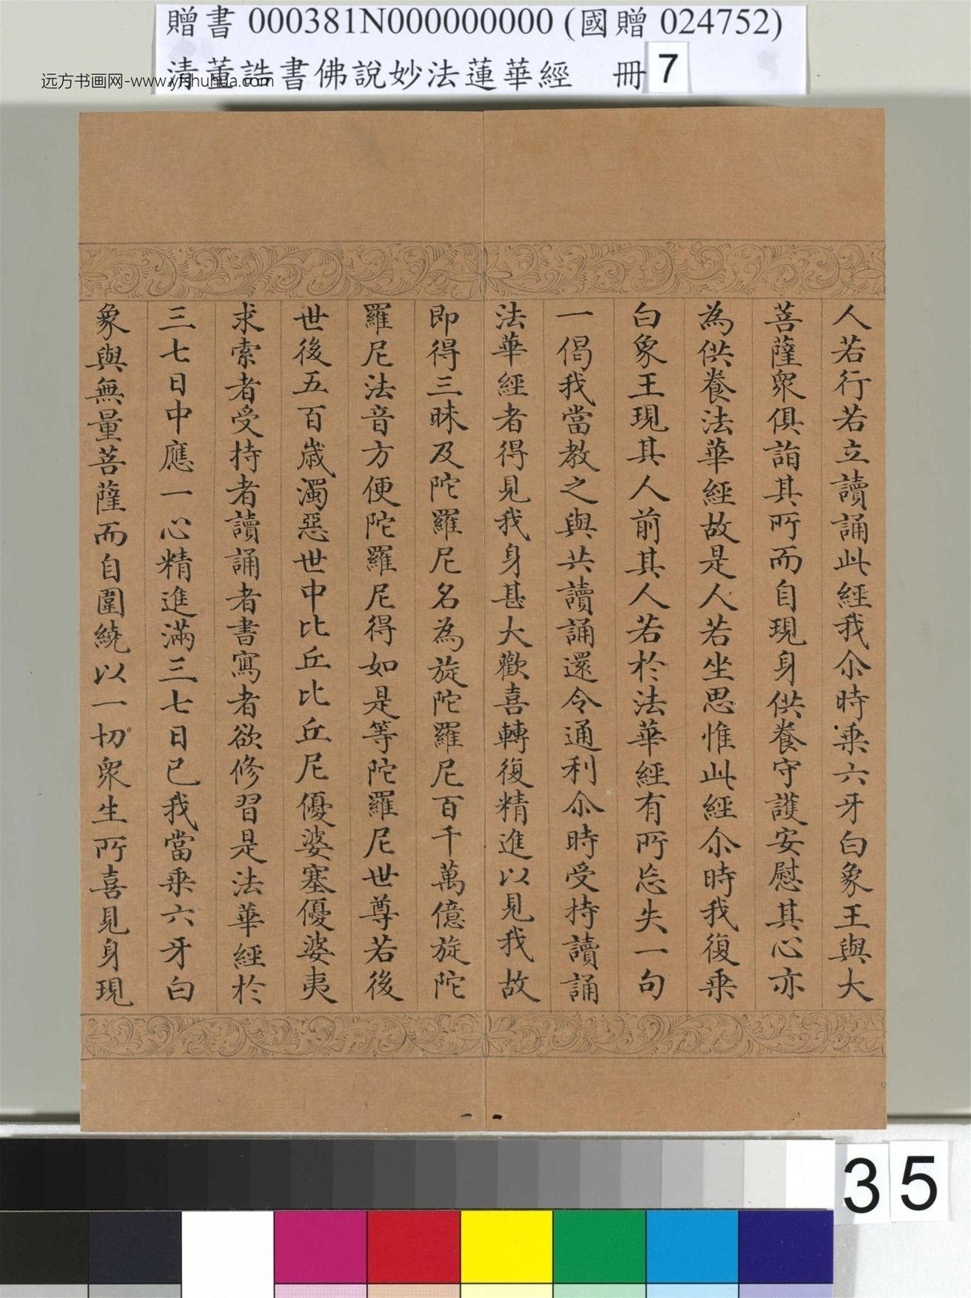 贈書 000381N000000000 (國贈 024752)
清董誥書佛說妙法蓮華經 冊 7
远方书画网-www.yfshuhua.com
人若行若立讀誦此經我尒時乗六牙白象王與大
菩薩衆俱詣其所而自現身供養守護安慰其心亦
為供養法華經故是人若坐思惟此經尒時我復乗
白象王現其人前其人若於法華經有所忘失一句
一偈我當教之與共讀誦還令通利尒時受持讀誦
法華經者得見我身甚大歡喜轉復精進以見我故
即得三昧及陀羅尼名為旋陀羅尼百千萬億旋陀
羅尼法音方便陀羅尼得如是等陀羅尼世尊若後
世後五百歲濁惡世中比丘比丘尼優婆塞優婆夷
求索者受持者讀誦者書寫者欲修習是法華經於
三七日中應一心精進滿三七日已我當乗六牙白
象與無量菩薩而自圍繞以一切衆生所喜見身現
35